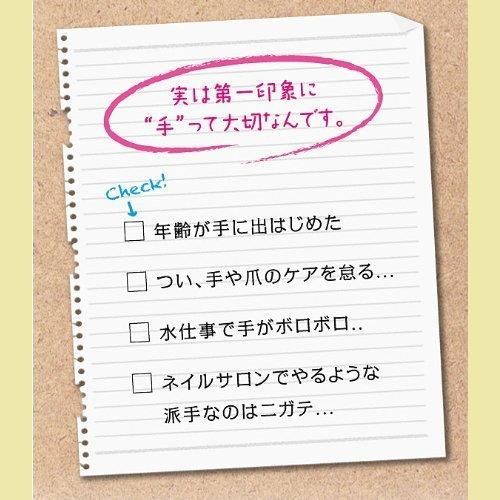 実は第一印象に
“手”って大切なんです。
Check!
年齢が手に出はじめた
つい、手や爪のケアを怠る...
水仕事で手がボロボロ..
ネイルサロンでやるような
派手なのはニガテ...